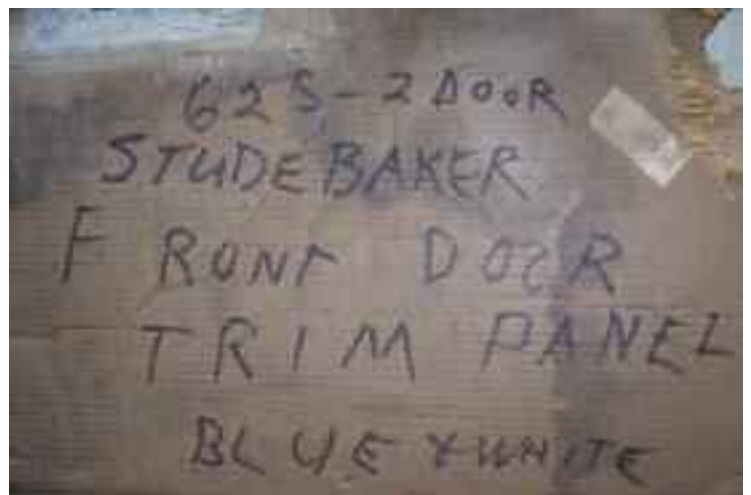 62S-2 DOOR
STUDEBAKER
FRONT DOOR
TRIM PANEL
BLUE & WHITE